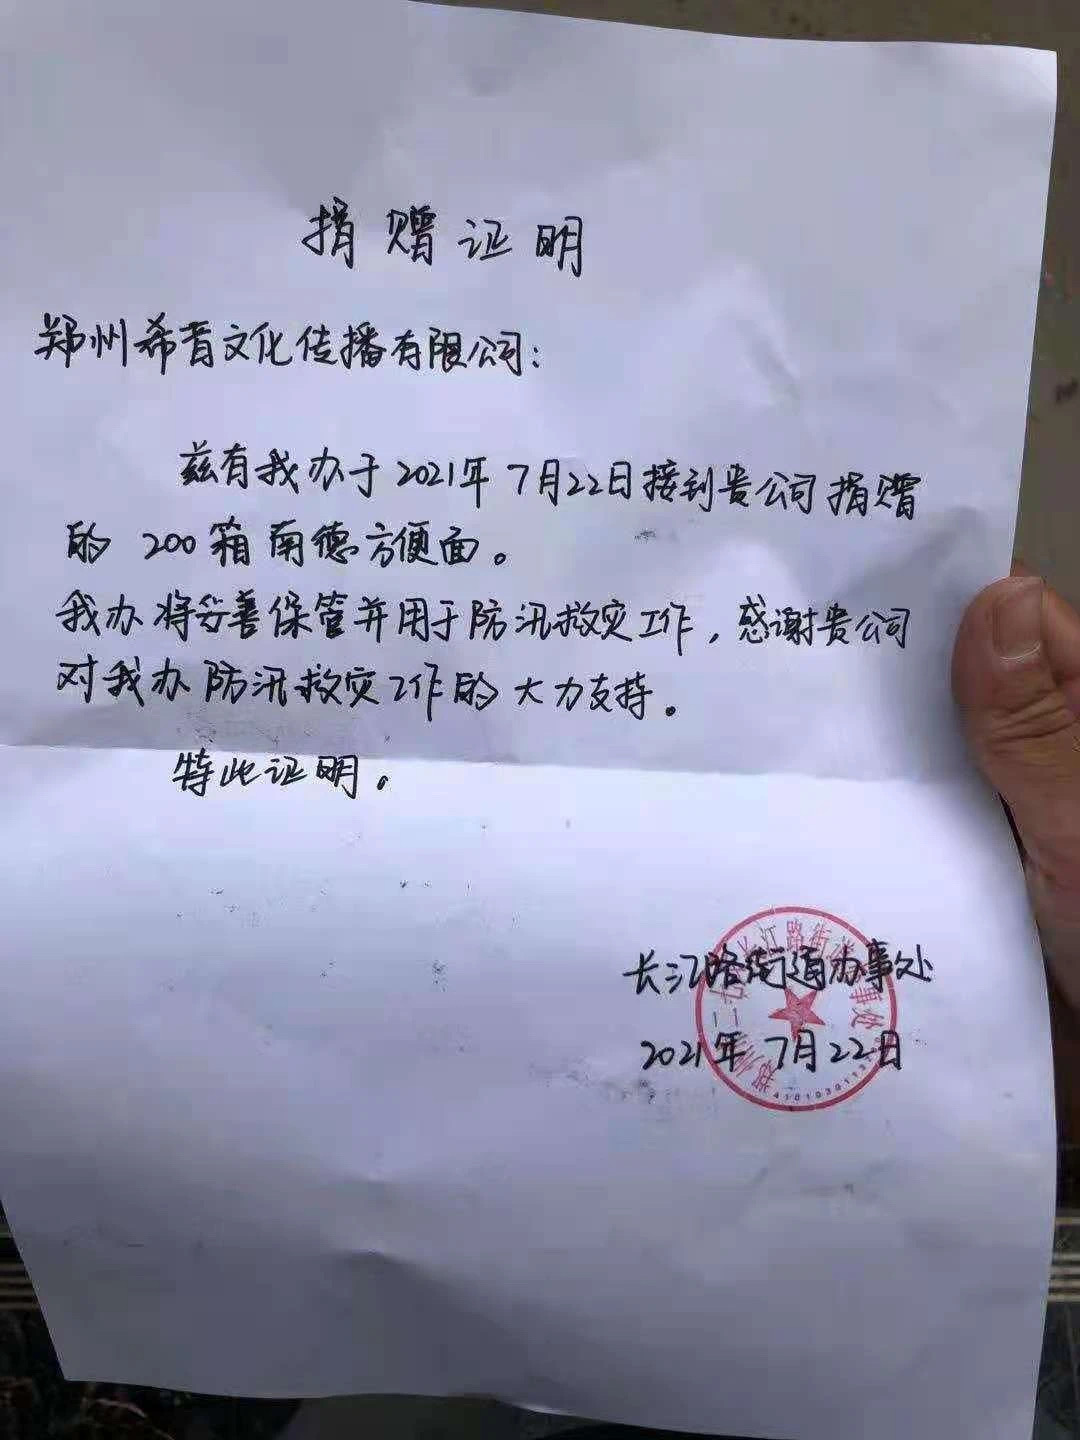 捐赠证明
郑州希音文化传播有限公司:
兹有我办于2021年7月22日接到贵公司捐赠
的 200箱南德方便面。
我办将妥善保管并用于防汛救灾工作,感谢贵公司
对我办防汛救灾工作的大力支持。
特此证明。
长江路街道办事处
2021年7月22日